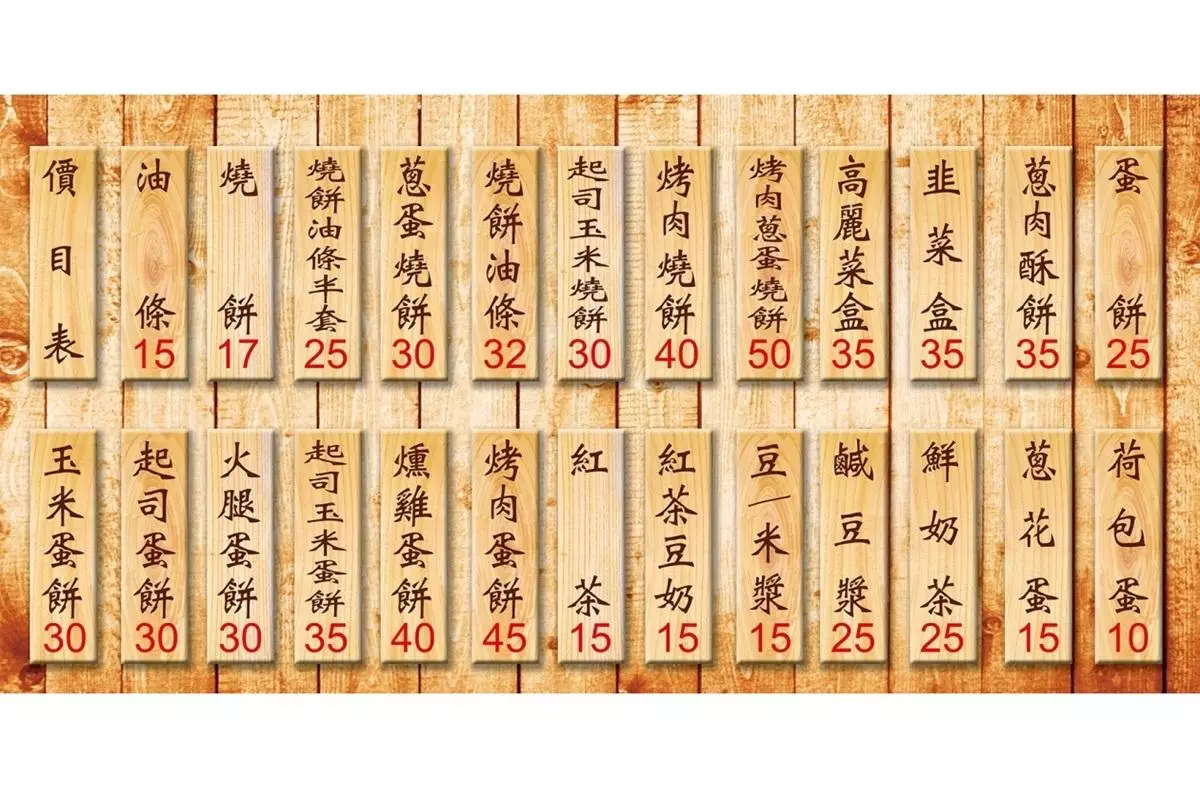 價目表
油條 15
燒餅 17
燒餅油條半套 25
蔥蛋燒餅 30
燒餅油條 32
起司玉米燒餅 30
烤肉燒餅 40
烤肉蔥蛋燒餅 50
高麗菜盒 35
韭菜盒 35
蔥肉酥餅 35
蛋餅 25
玉米蛋餅 30
起司蛋餅 30
火腿蛋餅 30
起司玉米蛋餅 35
燻雞蛋餅 40
烤肉蛋餅 45
紅茶 15
紅茶豆奶 15
豆/米漿 15
鹹豆漿 25
鮮奶茶 25
蔥花蛋 15
荷包蛋 10